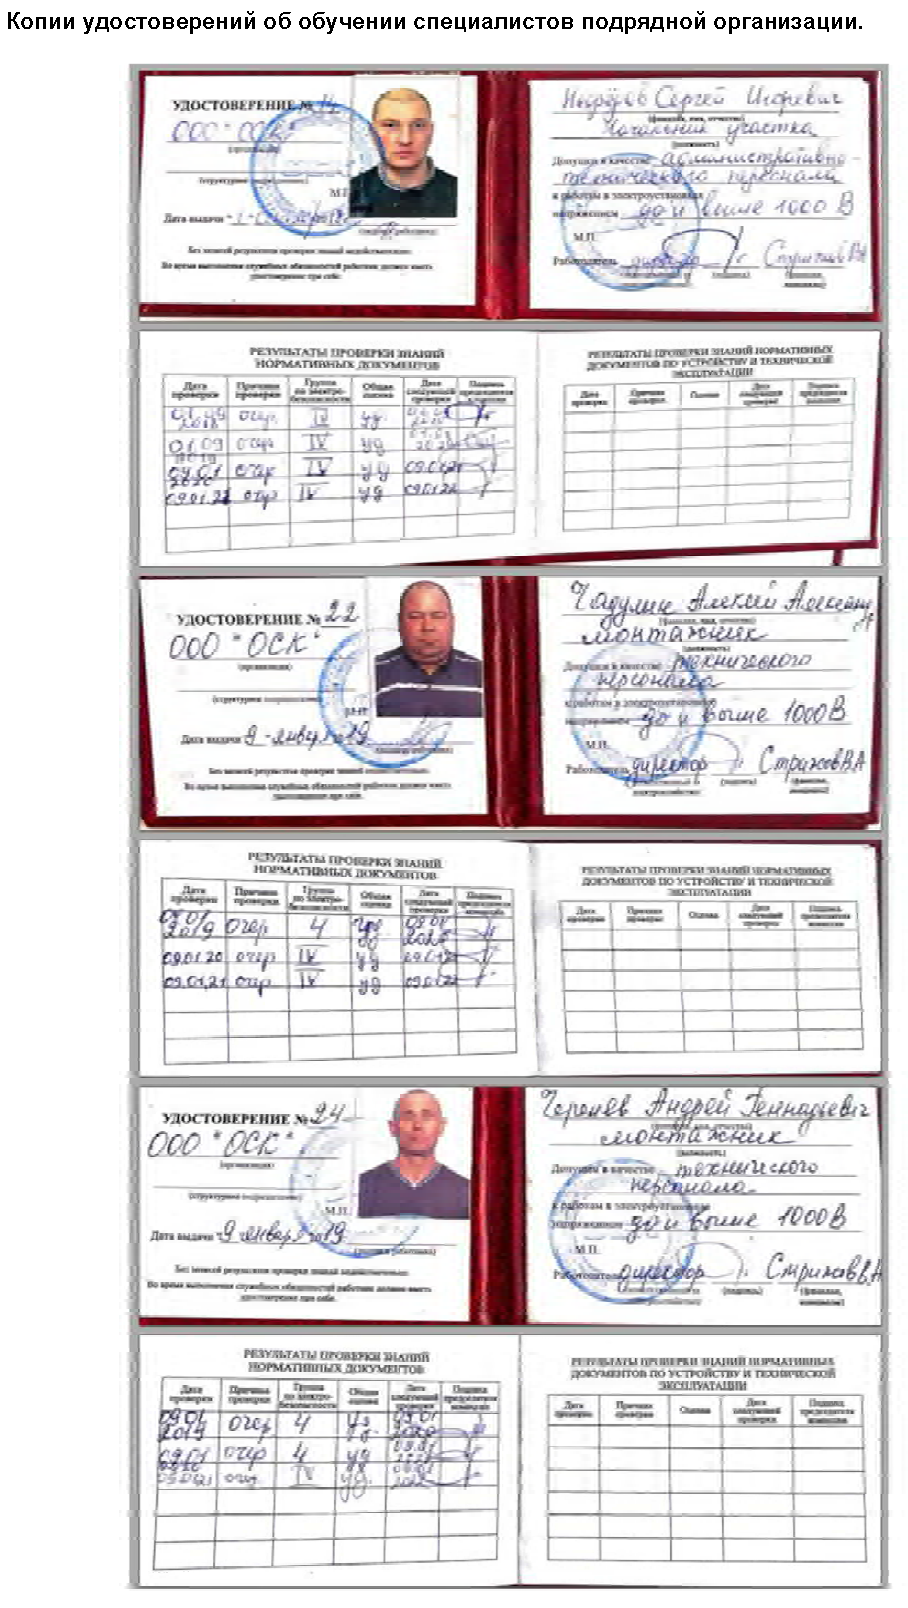 Копии удостоверений об обучении специалистов подрядной организации.
УДОСТОВЕРЕНИЕ №
ООО "ОСК"
(организация)
(структурное подразделение)
М.П.
Дата выдачи
(подпись работника)
Без записей результатов проверки знаний недействительно.
Во время выполнения служебных обязанностей работник должен иметь
удостоверение при себе.
Сергей Игоревич
(фамилия, имя, отчество)
Начальник участка
(должность)
Допущен в качестве административно-
технического персонала
к работам в электроустановках
напряжением до и выше 1000 В
М.П.
Работодатель директор
(подпись) (фамилия,
инициалы)
РЕЗУЛЬТАТЫ ПРОВЕРКИ ЗНАНИЙ
НОРМАТИВНЫХ ДОКУМЕНТОВ
Дата проверки Причина проверки Группа по электробезопасности Общая оценка Дата следующей проверки Подпись председателя комиссии
очер. IV уд.
01.09 очер IV уд
очер IV уд 09.01.21
09.01.21 очер IV уд 09.01.22
РЕЗУЛЬТАТЫ ПРОВЕРКИ ЗНАНИЙ НОРМАТИВНЫХ
ДОКУМЕНТОВ ПО УСТРОЙСТВУ И ТЕХНИЧЕСКОЙ
ЭКСПЛУАТАЦИИ
Дата проверки Причина проверки Оценка Дата следующей проверки Подпись председателя комиссии
УДОСТОВЕРЕНИЕ № 22
ООО "ОСК"
(организация)
(структурное подразделение)
М.П.
Дата выдачи 9 января 19
(подпись работника)
Без записей результатов проверки знаний недействительно.
Во время выполнения служебных обязанностей работник должен иметь
удостоверение при себе.
Чадулин Алексей
(фамилия, имя, отчество)
монтажник
(должность)
Допущен в качестве технического
персонала
к работам в электроустановках
напряжением до и выше 1000 В
М.П.
Работодатель директор Стрижов В.А
(подпись) (фамилия,
инициалы)
РЕЗУЛЬТАТЫ ПРОВЕРКИ ЗНАНИЙ
НОРМАТИВНЫХ ДОКУМЕНТОВ
Дата проверки Причина проверки Группа по электробезопасности Общая оценка Дата следующей проверки Подпись председателя комиссии
09.01 2019 очер 4 уд 09.01
09.01.20 очер IV уд
09.01.21 очер IV уд 09.01.22
РЕЗУЛЬТАТЫ ПРОВЕРКИ ЗНАНИЙ НОРМАТИВНЫХ
ДОКУМЕНТОВ ПО УСТРОЙСТВУ И ТЕХНИЧЕСКОЙ
ЭКСПЛУАТАЦИИ
Дата проверки Причина проверки Оценка Дата следующей проверки Подпись председателя комиссии
УДОСТОВЕРЕНИЕ № 24
ООО "ОСК"
(организация)
(структурное подразделение)
М.П.
Дата выдачи 9 января 19
(подпись работника)
Без записей результатов проверки знаний недействительно.
Во время выполнения служебных обязанностей работник должен иметь
удостоверение при себе.
Андрей Геннадьевич
(фамилия, имя, отчество)
монтажник
(должность)
Допущен в качестве технического
персонала
к работам в электроустановках
напряжением до и выше 1000 В
М.П.
Работодатель директор Стрижов В.А
(подпись) (фамилия,
инициалы)
РЕЗУЛЬТАТЫ ПРОВЕРКИ ЗНАНИЙ
НОРМАТИВНЫХ ДОКУМЕНТОВ
Дата проверки Причина проверки Группа по электробезопасности Общая оценка Дата следующей проверки Подпись председателя комиссии
09.01 2019 очер 4 уд. 09.01 2020
09.01 очер 4 уд 09.01
очер IV уд. 09.01 2022
РЕЗУЛЬТАТЫ ПРОВЕРКИ ЗНАНИЙ НОРМАТИВНЫХ
ДОКУМЕНТОВ ПО УСТРОЙСТВУ И ТЕХНИЧЕСКОЙ
ЭКСПЛУАТАЦИИ
Дата проверки Причина проверки Оценка Дата следующей проверки Подпись председателя комиссии